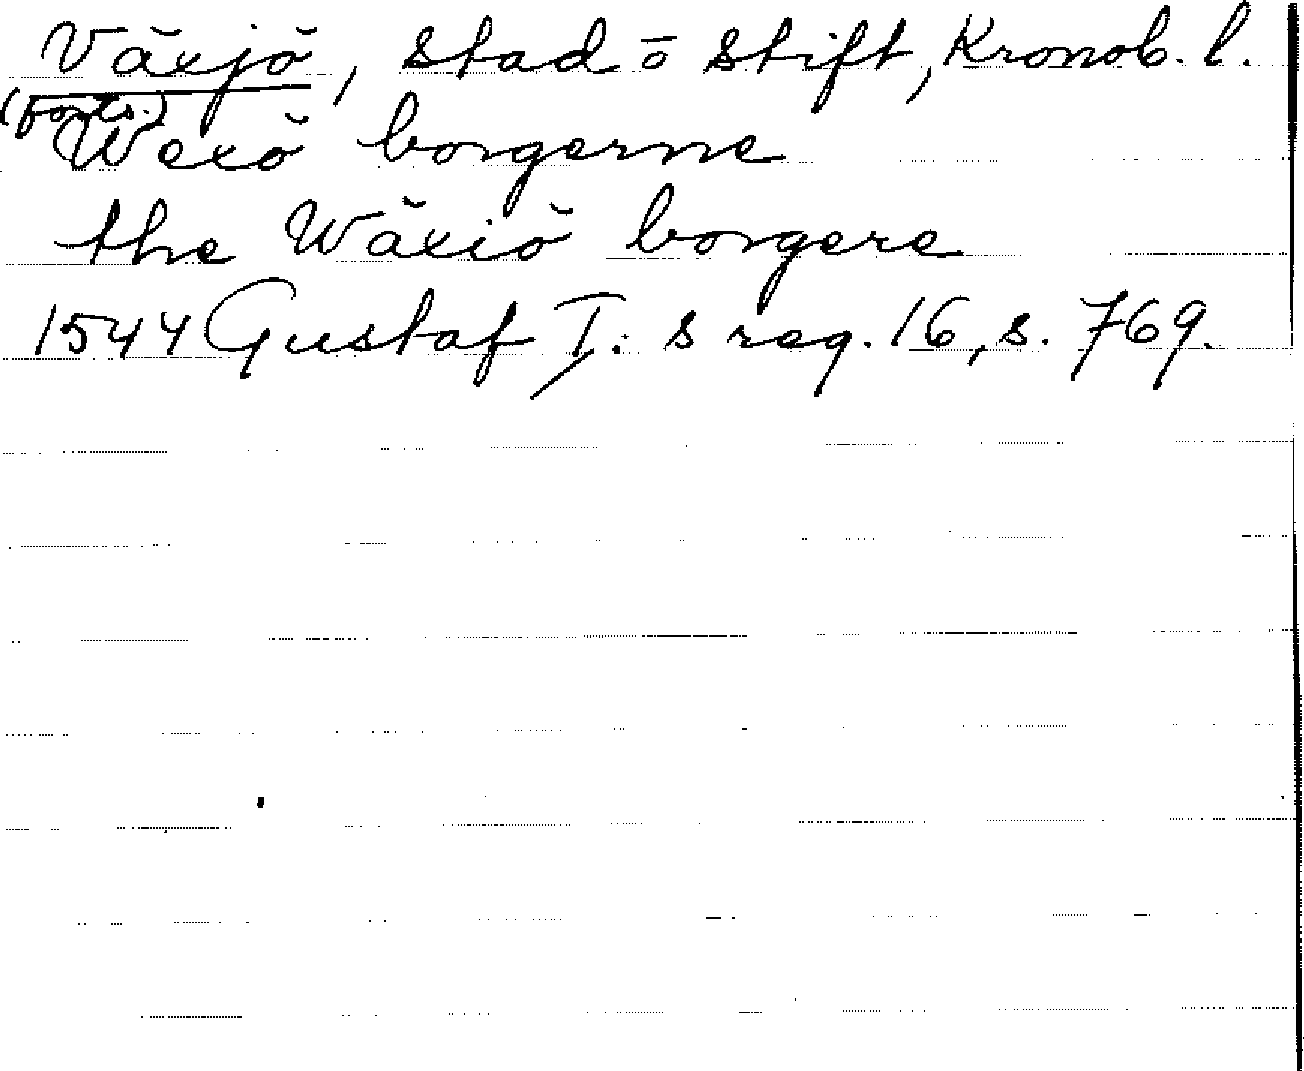 Växjö, stad o stift, Kronob. l.
(forts.)
Wexö borgerne
the Wäxiö borgere
1544 Gustaf I:s reg. 16, s. 769.